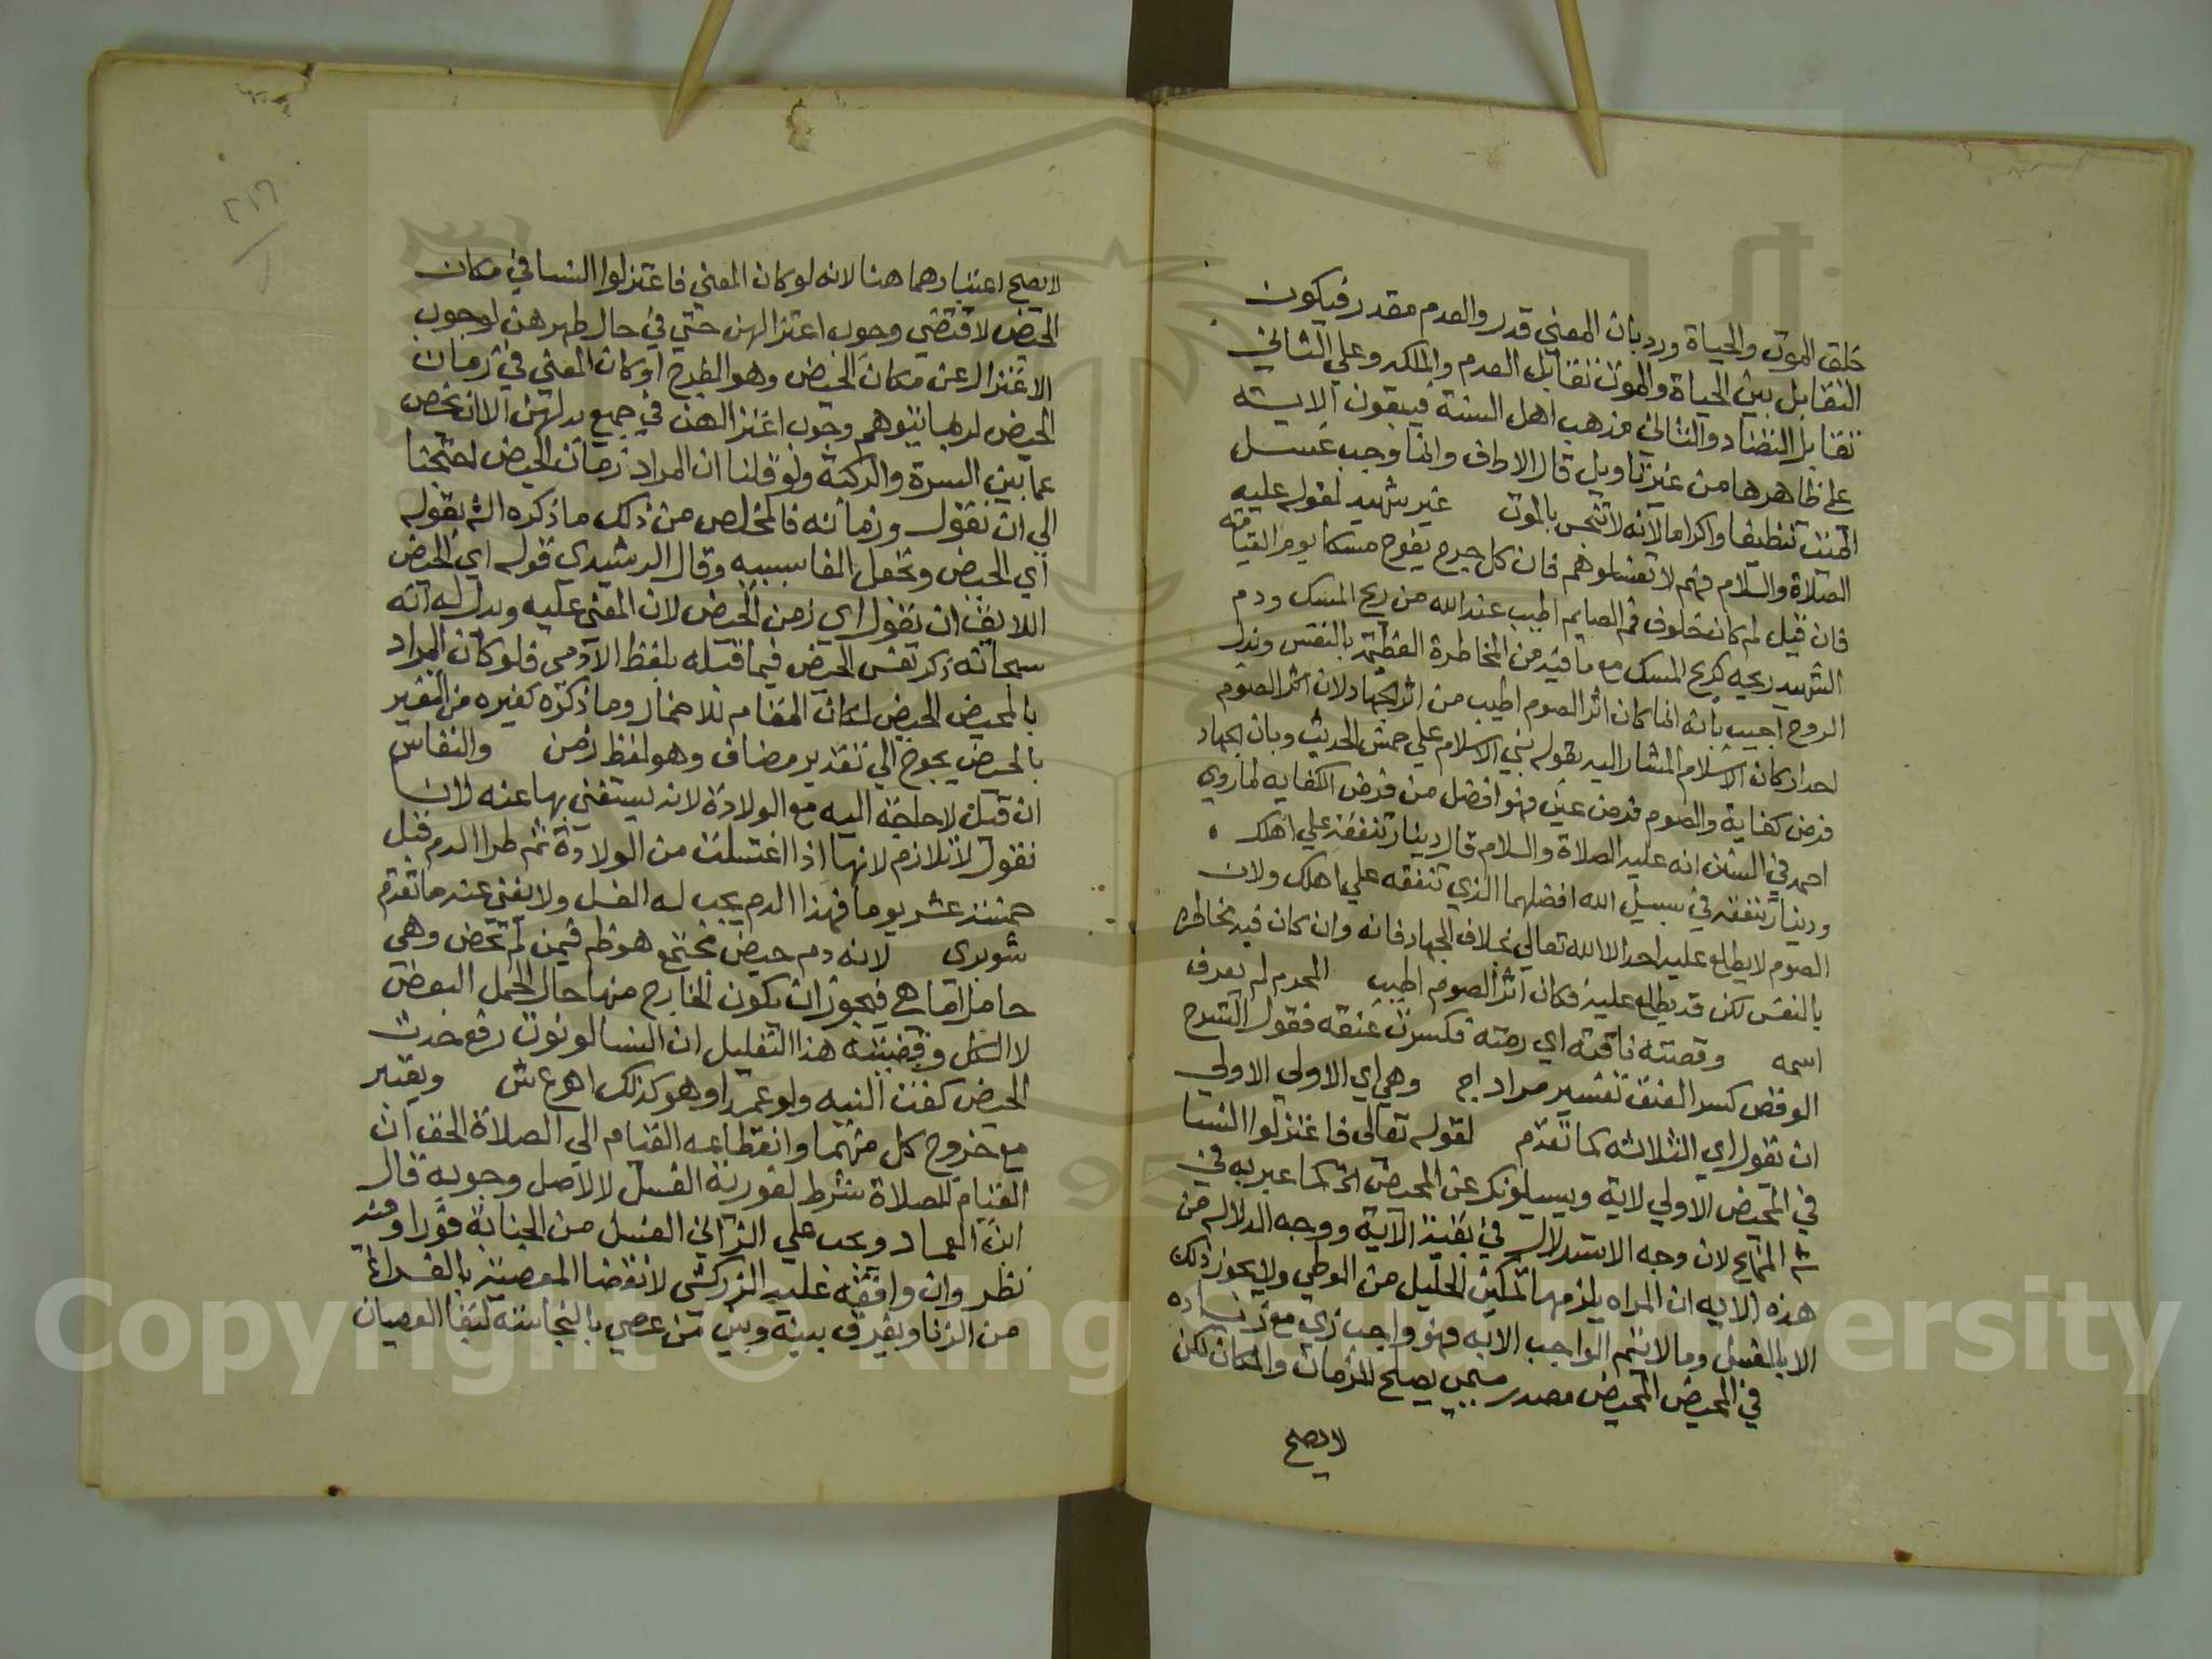 خلق الموت والحياة ورد بان المعني قدر والعدم مقدر فيكون
التقابل بين الحياة والموت تقابل العدم والملكه وعلي الثاني
تقابل التضاد والثاني مذهب اهل السنة فيبقون الايـة
علي ظاهرها من غير تاويل قال الاطف وانما وجب غسل
الميت تنظيفا واكراما لانه لا تنجس بالموت غير شهيد لقوله عليه
الصلاة والسلام فيهم لا تغسلوهم فان كل جرح يفوح مسكا يوم القيامة
فان قيل لم كان خلوف فم الصايم اطيب عند الله من ريح المسك ودم
الشهيد ريحه كريح المسك مع ما فيه من المخاطرة العظيمة بالنفس وبذل
الروح اجيب بانه انما كان اثر الصوم اطيب من اثر الجهاد لان اثر الصوم
احد اركان الاسلام المشار اليه بقوله بني الاسلام علي خمس الحديث وبان الجهاد
فرض كفاية والصوم فرض عين فهو افضل من فرض الكفايه لما روي
احمد في السنن انه عليه الصلاة والسلام قال دينار تنفقه علي اهلك
ودينار تنفقه في سبيل الله افضلهما الذي تنفقه علي اهلك ولان
الصوم لا يطلع عليه احد الا الله تعالي بخلاف الجهاد فانه وان كان فيه مخاطرة
بالنفس لكن قد يطلع عليه فكان اثر الصوم اطيب المحرم لم يعرف
اسمه وقصته ناقته اي رمته فكسرت عنقه فقول الشرح
الوقص كسر العنق تفسير مراد اج وهي اي الاولي الاولي
ان تقول اي الثلاثه كما تقدم لقوله تعالي فاعتزلوا النسا
في المحيض الاولي لاية ويسيلونك عن المحيض الخ كما عبر به في
ش المنهج لان وجه الاستدلال في بقية الاية ووجه الدلالة من
هذه الايه ان المراه يلزمها تمكين الحليل من الوطي ولا يجوز ذلك
الا بالغسل وما لا يتم الواجب الا به فهو واجب زي مع زياده
في المحيض المحيض مصدر ميمي يصلح للزمان والمكان لكن
لا يصح
لا يصح اعتبارهما هنا لانه لو كان المعني فاعتزلوا النسا في مكان
الحيض لاقتضي وجوب اعتزالهن حتي في حال طهرهن لوجوب
الاعتزال عن مكان الحيض وهو الفرج او كان المعني في زمان
الحيض لربما يتوهم وجوب اعتزالهن في جميع بدنهن الا ان يخص
عما بين السرة والركبة ولو قلنا ان المراد زمان الحيض لاحتجنا
الي ان نقول وزمانه فالمخلص من ذلك ما ذكره الش بقوله
اي الحيض وتجعل الفا سببيه وقال الرشيدي قوله اي الحيض
اللايق ان يقول اي زمن الحيض لان المعني عليه ويدل له انه
سبحانه ذكر نفس الحيض فيما قبله بلفظ الاذي فلو كان المراد
بالمحيض الحيض لكان المقام للاضمار وما ذكره كغيره من التعبير
بالحيض يحوج الي تقدير مضاف وهو لفظ زمن والنفاس
ان قيل لا حاجة اليه مع الولادة لانه يستغني بها عنه لانا
نقول لا تلازم لانها اذا اغتسلت من الولادة ثم طرا الدم قبل
خمسة عشر يوما فهذا الدم يجب له الغسل ولا يغني عنه ما تقدم
شوبري لانه دم حيض مجتمع هو ظم فيمن لم تحض وهي
حامل اما هي فيجوز ان يكون الخارج منها حال الحمل البعض
لا الكل وقضيته هذا التعليل ان النسا لو نوت رفع حدث
الحيض كفت النيه ولو عمدا وهو كذلك اهـ ع ش ويعتبر
مع خروج كل منهما وانقطاعه القيام الي الصلاة الحق ان
القيام للصلاة شرط لفورية الغسل لا لاصل وجوبه قال
ابن العماد ويجب علي الزاني الغسل من الجنابة فورا وفيه
نظر وان وافقه عليه الزركشي لانقضا المعصية بالفراغ
من الزنا ويفرق بينه وبين من عصي بالنجاسة لبقا العصيان